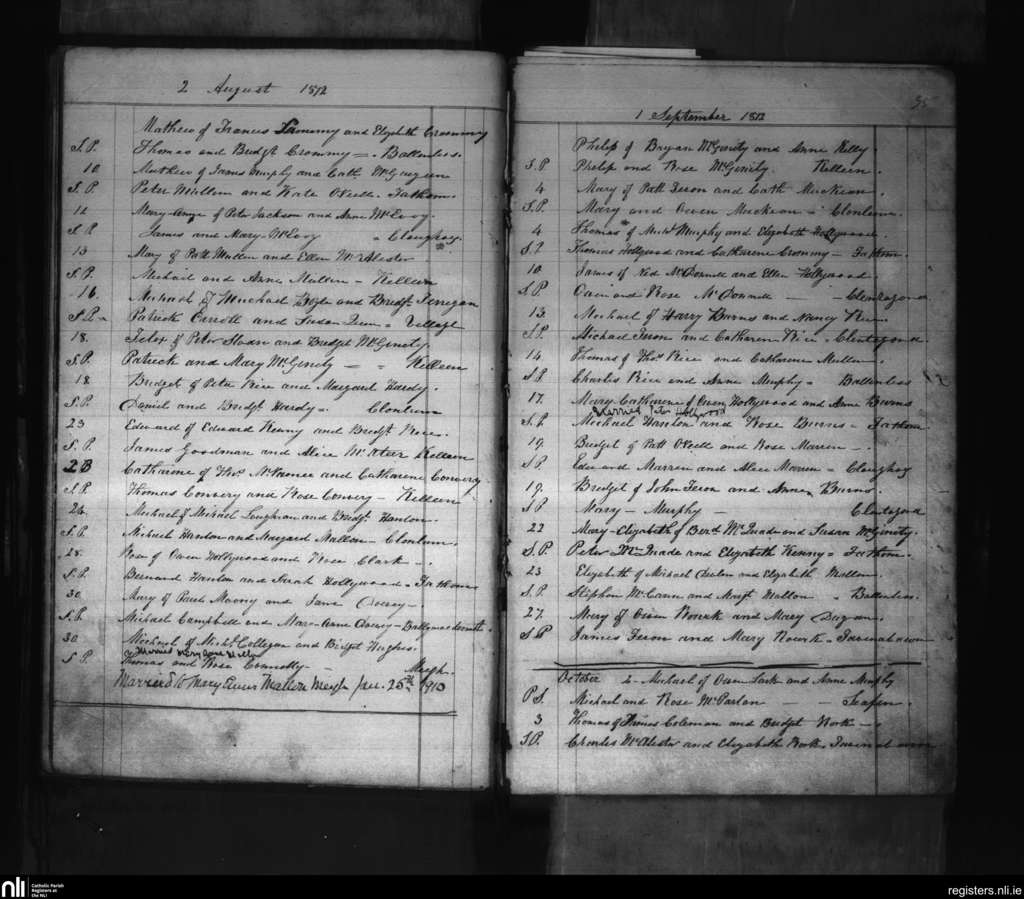 2 August 1872
Mathew of Francis and Elizabeth Crommy
S.P. Thomas and Bridgt Crommy = Ballinless.
10 Mathew of James Murphy and Cath McGuigan
S.P. Peter Mullen and Kate O'Neill. Fathom.
12 Mary-Anne of Peter Jackson and Anne McEvoy.
S.P. James and Mary McEvoy " Cloughoy.
13 Mary of Patt Mullen and Ellen McAlester
S.P. Michael and Anne Mullen - Killeen
16. Michael of Michael Boyle and Bridgt Finegan
S.P. Patrick Carroll and Susan = Village
18. Felex of Peter Sloan and Bridget McGinety
S.P. Patrick and Mary McGinety = = Killeen
18. Bridget of Peter Rice and Margaret Hardy.
S.P. Daniel and Bridgt Hardy = Clontum
23 Edward of Edward Kenny and Bridgt Rice.
S.P. James Goodman and Alice McAteer Killeen
28 Catharine of Thos. McNamee and Catharine Convery
S.P. Thomas Convery and Rose Convery - Killeen
26. Michael of Michael Loughran and Bridgt. Hanlon.
S.P. Michael Hanlon and Margaret Mallon - Clontum.
28. Rose of Owen Hollywood and Rose Clark - .
S.P. Bernard Hanlon and Sarah Hollywood = Fathom
30. Mary of Paul Moony and Jane -
S.P. Michael Campbell and Mary-Anne - Ballymacdermott
30. Michael of Michl. Collegan and Bridget Hughes.
Married Mary Jane
S.P. Thomas and Rose Connolly - Meigh.
Married to Mary Mallon Meigh Jan. 25th 1913
35
1 September 1872
Philip of Bryan McGinity and Anne Kelly
S.P. Philip and Rose McGinity. Killeen.
4 Mary of Patt Feron and Cath Muckian.
S.P. Mary and Owen Muckian = Clontum.
4 Thomas of Michl Murphy and Elizabeth Hollywood.
S.P. Thomas Hollywood and Catharene Crommy - Fathom.
10. James of Ned McDonnell and Ellen Hollywood.
S.P. and Rose McDonnell - - Clontagora
13. Michael of Harry Burns and Nancy Rice
S.P. Michael Feron and Catharen Rice. Clontagora.
14. Thomas of Thos Rice and Catharene Mullen
S.P. Charles Rice and Anne Murphy = Ballinless
17. Mary Catharene of Owen Hollywood and Anne Burns
Married Peter Hollywood
S.P. Michael Hanlon and Rose Burns - Fathom
19. Bridget of Patt O'Neill and Rose Marren - .
S.P. Edward Marren and Alice Marren = Cloughoy
19. Bridget of John Feron and Anne Burns.
S.P. Mary - Murphy - Clontagora
22 Mary-Elizabeth of Berd. McQuade and Susan McGinity.
S.P. Peter McQuade and Elizabeth Kenny = Fathom
23 Elizabeth of Michael and Elizabeth Mallon.
S.P. Stephen McCann and Margt Mallon " Ballinless.
27. Mary of Owen Rourk and Mary Dugan.
S.P. James Feron and Mary Rourk -
October 2 - Michael of Owen Lark and Anne Murphy
P.S. Michael and Rose McParlan - - Seafin.
3 Thomas of Thomas Coleman and Bridget Rork - .
S.P. Charles McAlester and Elizabeth Rork.
nli
Catholic Parish
Registers at
the NLI
registers.nli.ie